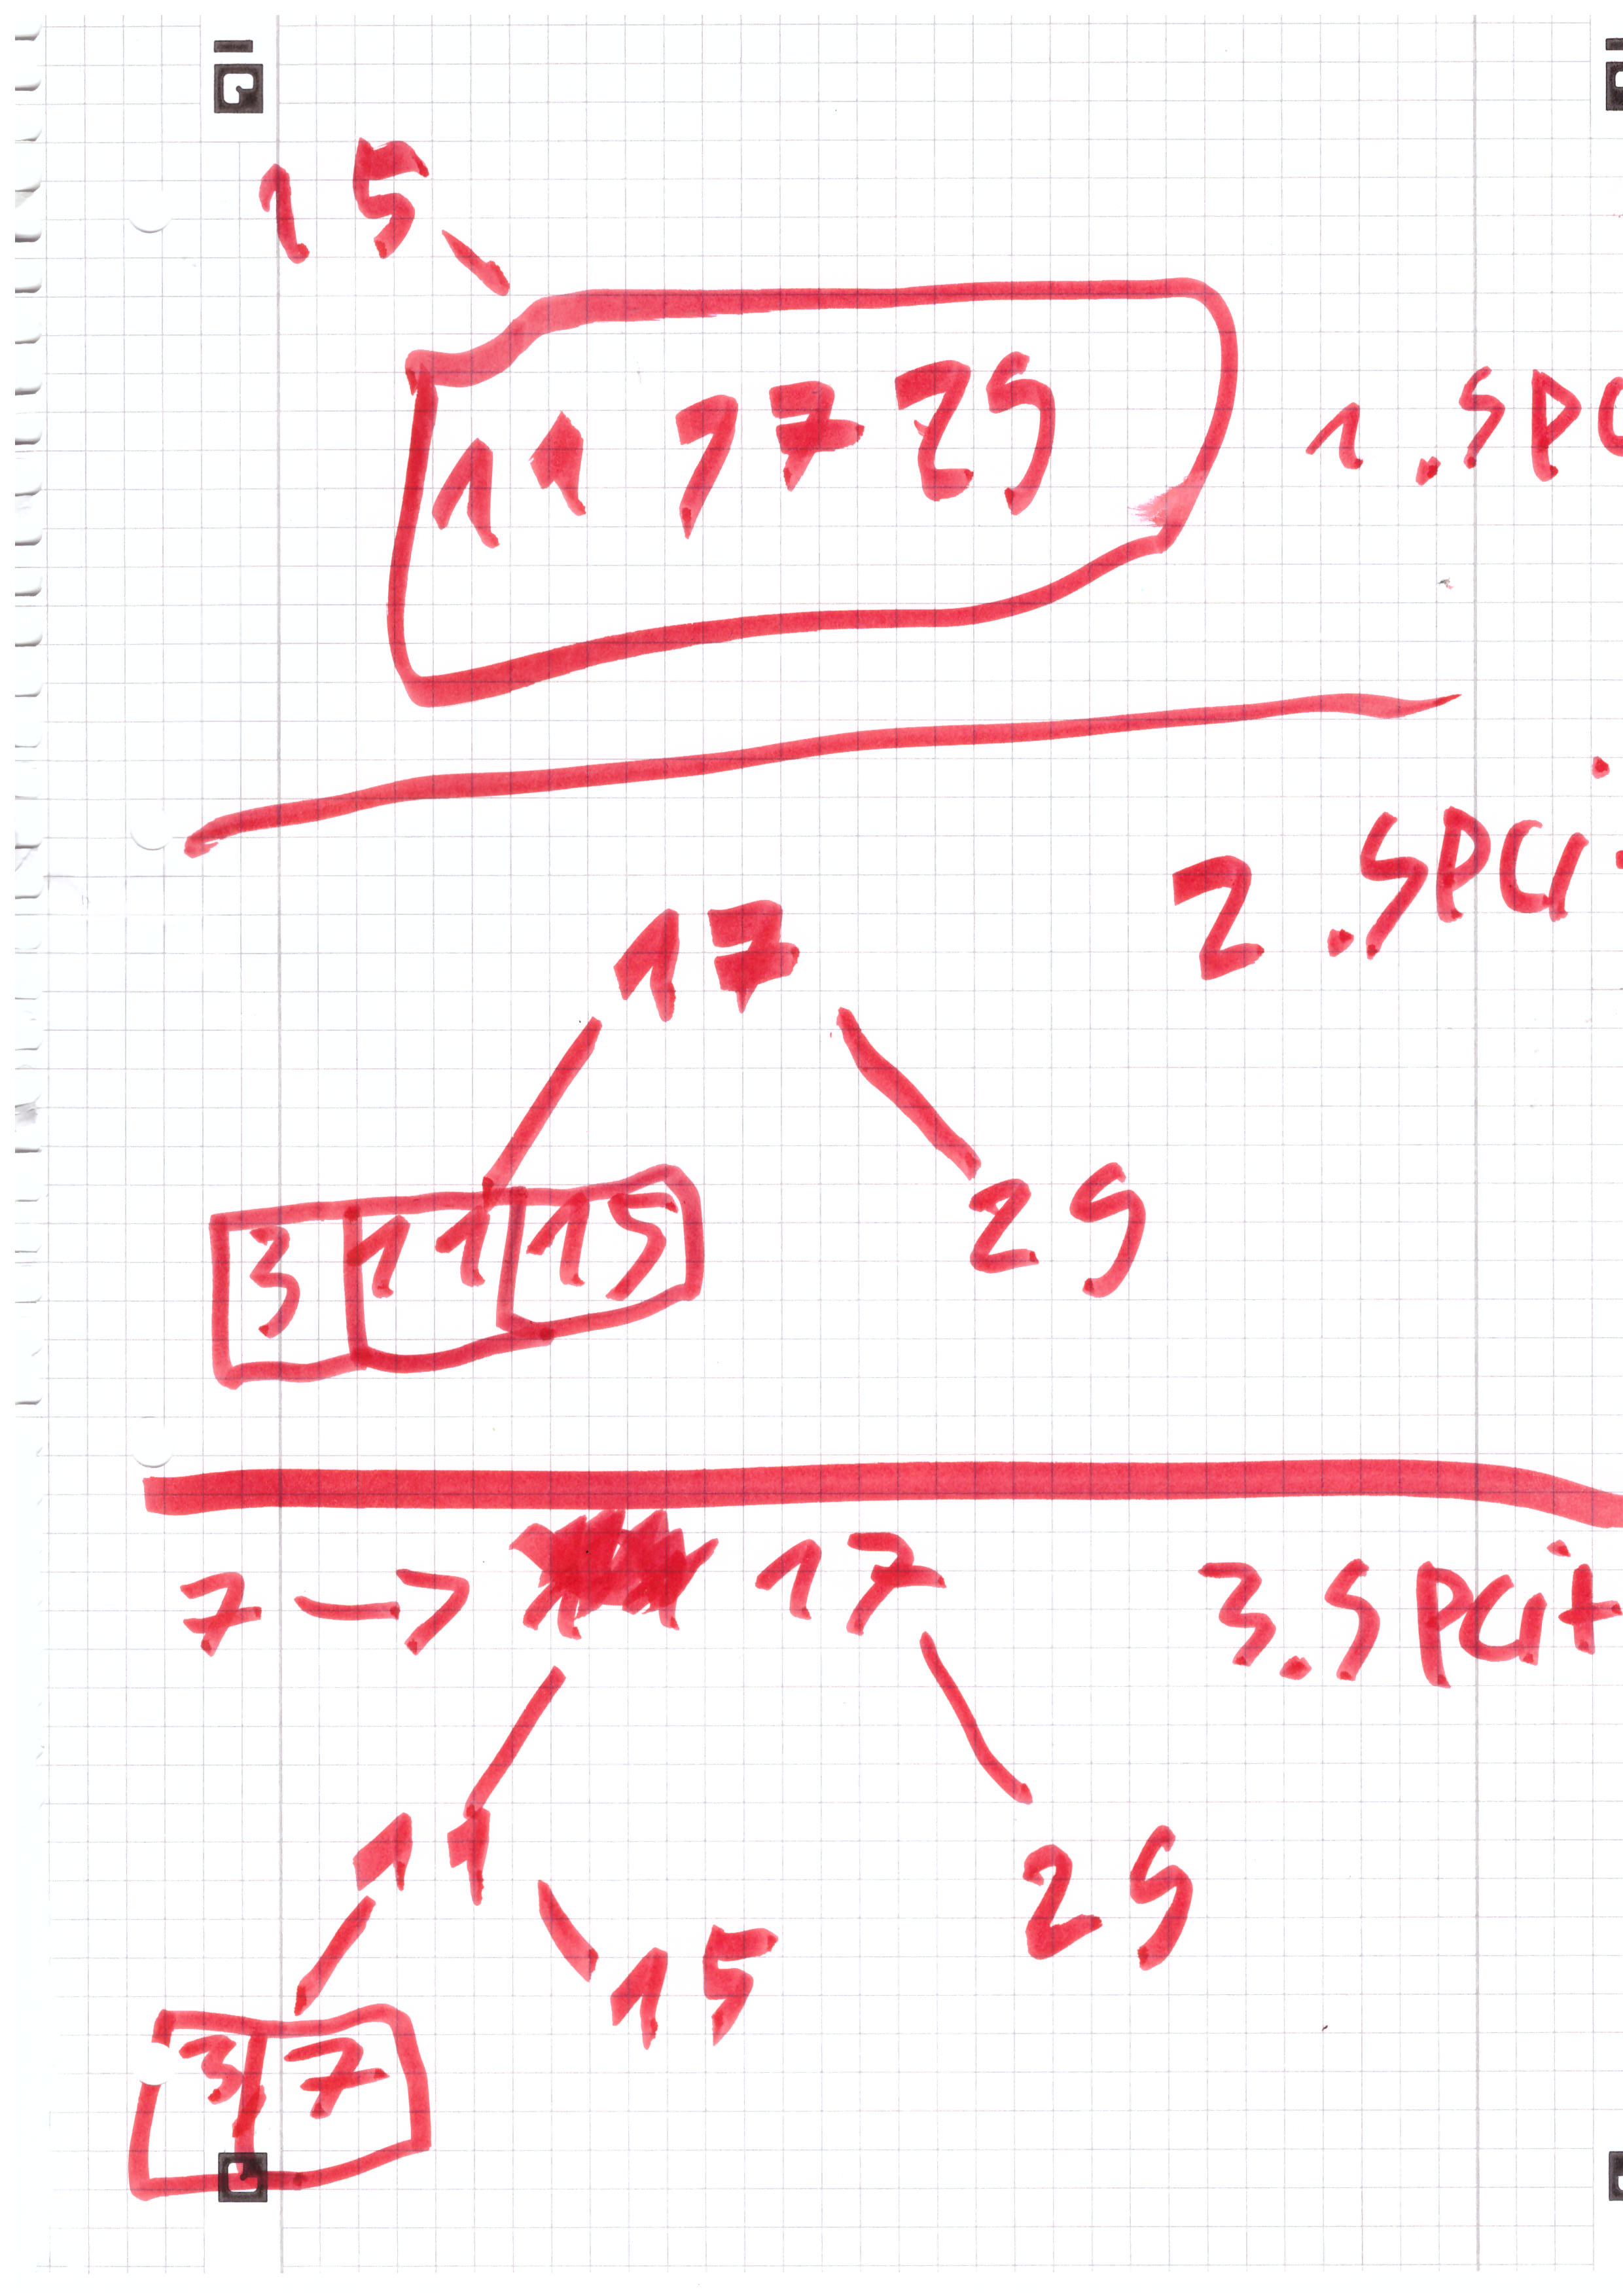 15
11 17 25
1.SPl
17
2.SPlit
3 11 15
25
7 → 17
3.SPlit
11
25
15
3 7